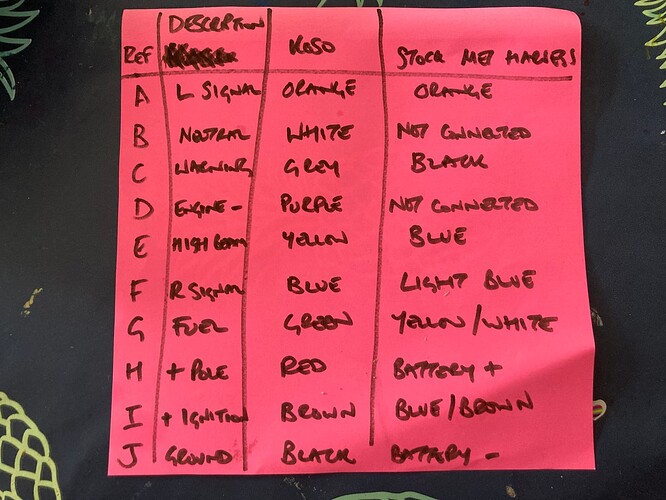 Ref DESCRIPTION KOSO STOCK MET HARNESS
A L SIGNAL ORANGE ORANGE
B NEUTRAL WHITE NOT CONNECTED
C WARNING GREY BLACK
D ENGINE - PURPLE NOT CONNECTED
E HIGH BEAM YELLOW BLUE
F R SIGNAL BLUE LIGHT BLUE
G FUEL GREEN YELLOW/WHITE
H + POLE RED BATTERY +
I + IGNITION BROWN BLUE/BROWN
J GROUND BLACK BATTERY -